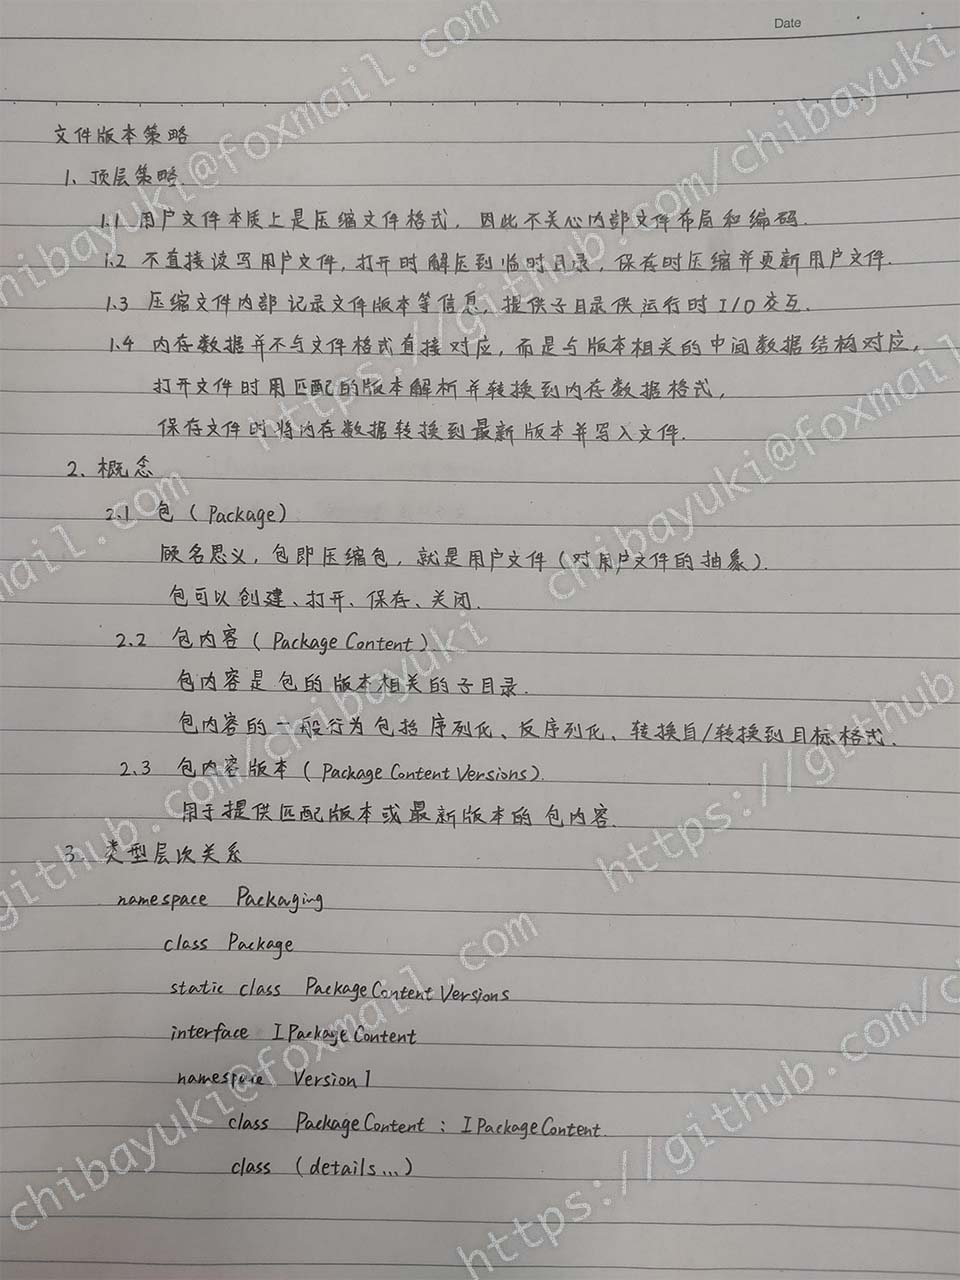 Date
文件版本策略
1、顶层策略.
1.1 用户文件本质上是压缩文件格式，因此不关心内部文件布局和编码.
1.2 不直接读写用户文件，打开时解压到临时目录，保存时压缩并更新用户文件.
1.3 压缩文件内部记录文件版本等信息，提供子目录供运行时I/O交互.
1.4 内存数据并不与文件格式直接对应，而是与版本相关的中间数据结构对应，
打开文件时用匹配的版本解析并转换到内存数据格式，
保存文件时将内存数据转换到最新版本并写入文件.
2、概念
2.1 包（Package）
顾名思义，包即压缩包，就是用户文件（对用户文件的抽象）.
包可以创建、打开、保存、关闭.
2.2 包内容（Package Content）
包内容是包的版本相关的子目录.
包内容的一般行为包括序列化、反序列化、转换自/转换到目标格式.
2.3 包内容版本（Package Content Versions）
用于提供匹配版本或最新版本的包内容.
3、类型层次关系
namespace Packaging
class Package
static class PackageContentVersions
interface IPackageContent
namespace Version1
class PackageContent : IPackageContent
class (details...)
chibayuki@foxmail.com
https://github.com/chibayuki
chibayuki@foxmail.com
https://github.com/chibayuki
chibayuki@foxmail.com
https://github.com/chibayuki